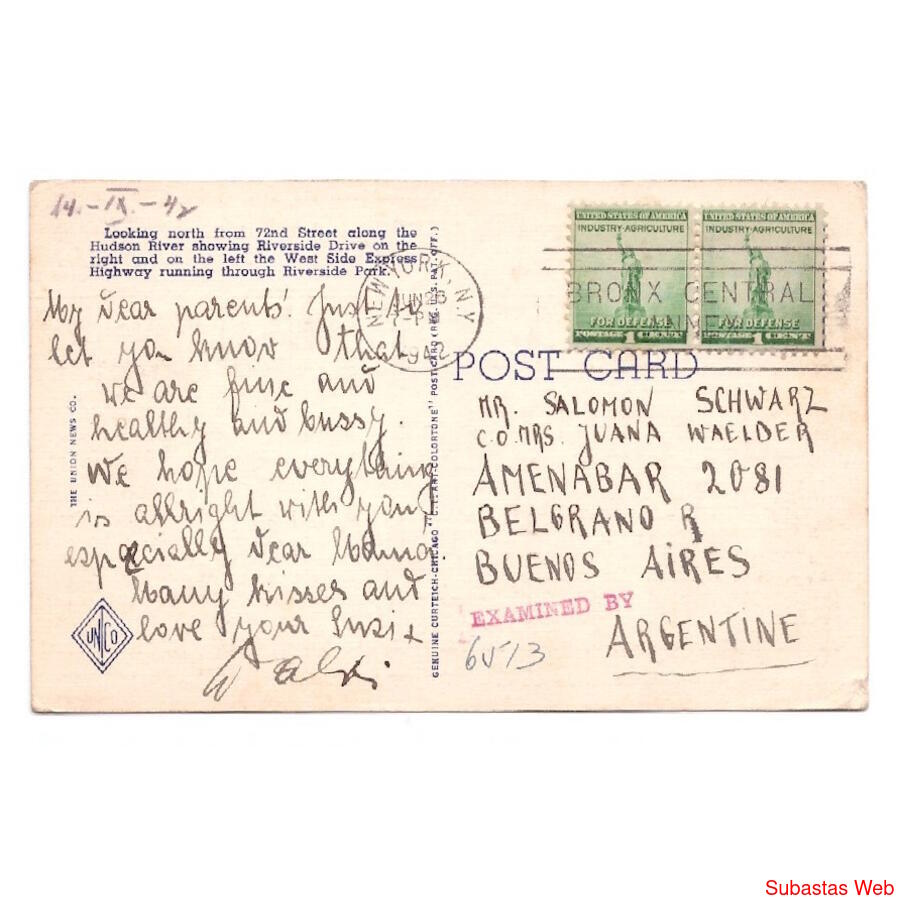 14.-IX.-42
Looking north from 72nd Street along the
Hudson River showing Riverside Drive on the
right and on the left the West Side Express
Highway running through Riverside Park.
My dear parents! Just to
let you know that
we are fine and
healthy and bussy.
We hope everything
is allright with you,
especially dear Mama.
Many kisses and
love your Susi +
THE UNION NEWS CO.
UNCO
GENUINE CURTEICH-CHICAGO "C.T. ART-COLORTONE" POST CARD (REG. U.S. PAT. OFF.)
NEW YORK, N.Y.
JUN 26
1942
UNITED STATES OF AMERICA
INDUSTRY-AGRICULTURE
FOR DEFENSE
POSTAGE 1 CENT
UNITED STATES OF AMERICA
INDUSTRY-AGRICULTURE
FOR DEFENSE
POSTAGE 1 CENT
BRONX CENTRAL
ANNEX
POST CARD
MR. SALOMON SCHWARZ
C.O. MRS. JUANA WAELDER
AMENABAR 2081
BELGRANO R
BUENOS AIRES
ARGENTINE
EXAMINED BY
6513
Subastas Web